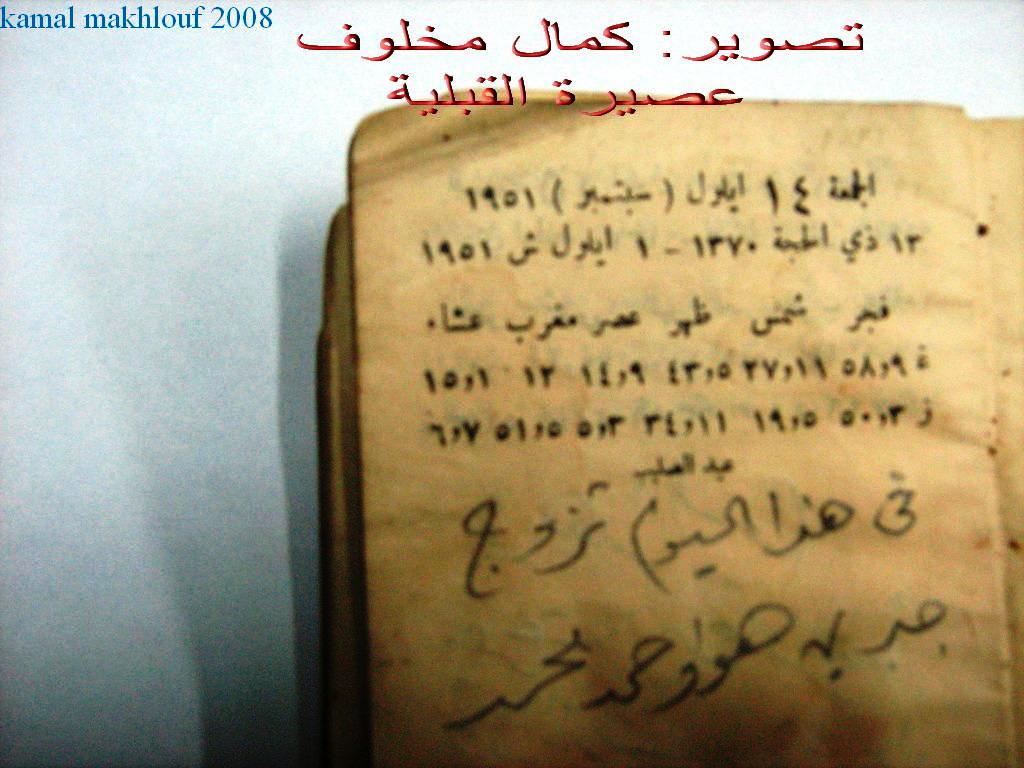 kamal makhlouf 2008
تصوير : كمال مخلوف
عصيرة القبلية
الجمعة ١٤ ايلول ( سبتمبر ) ١٩٥١
١٣ ذي الحجة ١٣٧٠ - ١ ايلول ش ١٩٥١
فجر شمس ظهر عصر مغرب عشاء
٥٨,٩ ٢٧,١١ ٤٣,٥ ١٤,٩ ١٢ ١٥,١
ز ٥٠,٣ ١٩,٥ ٣٤,١١ ٥,٣ ٥١,٥ ٦,٧
عيد الصليب
في هذا اليوم تزوج
جبرين هو واحمد محمد